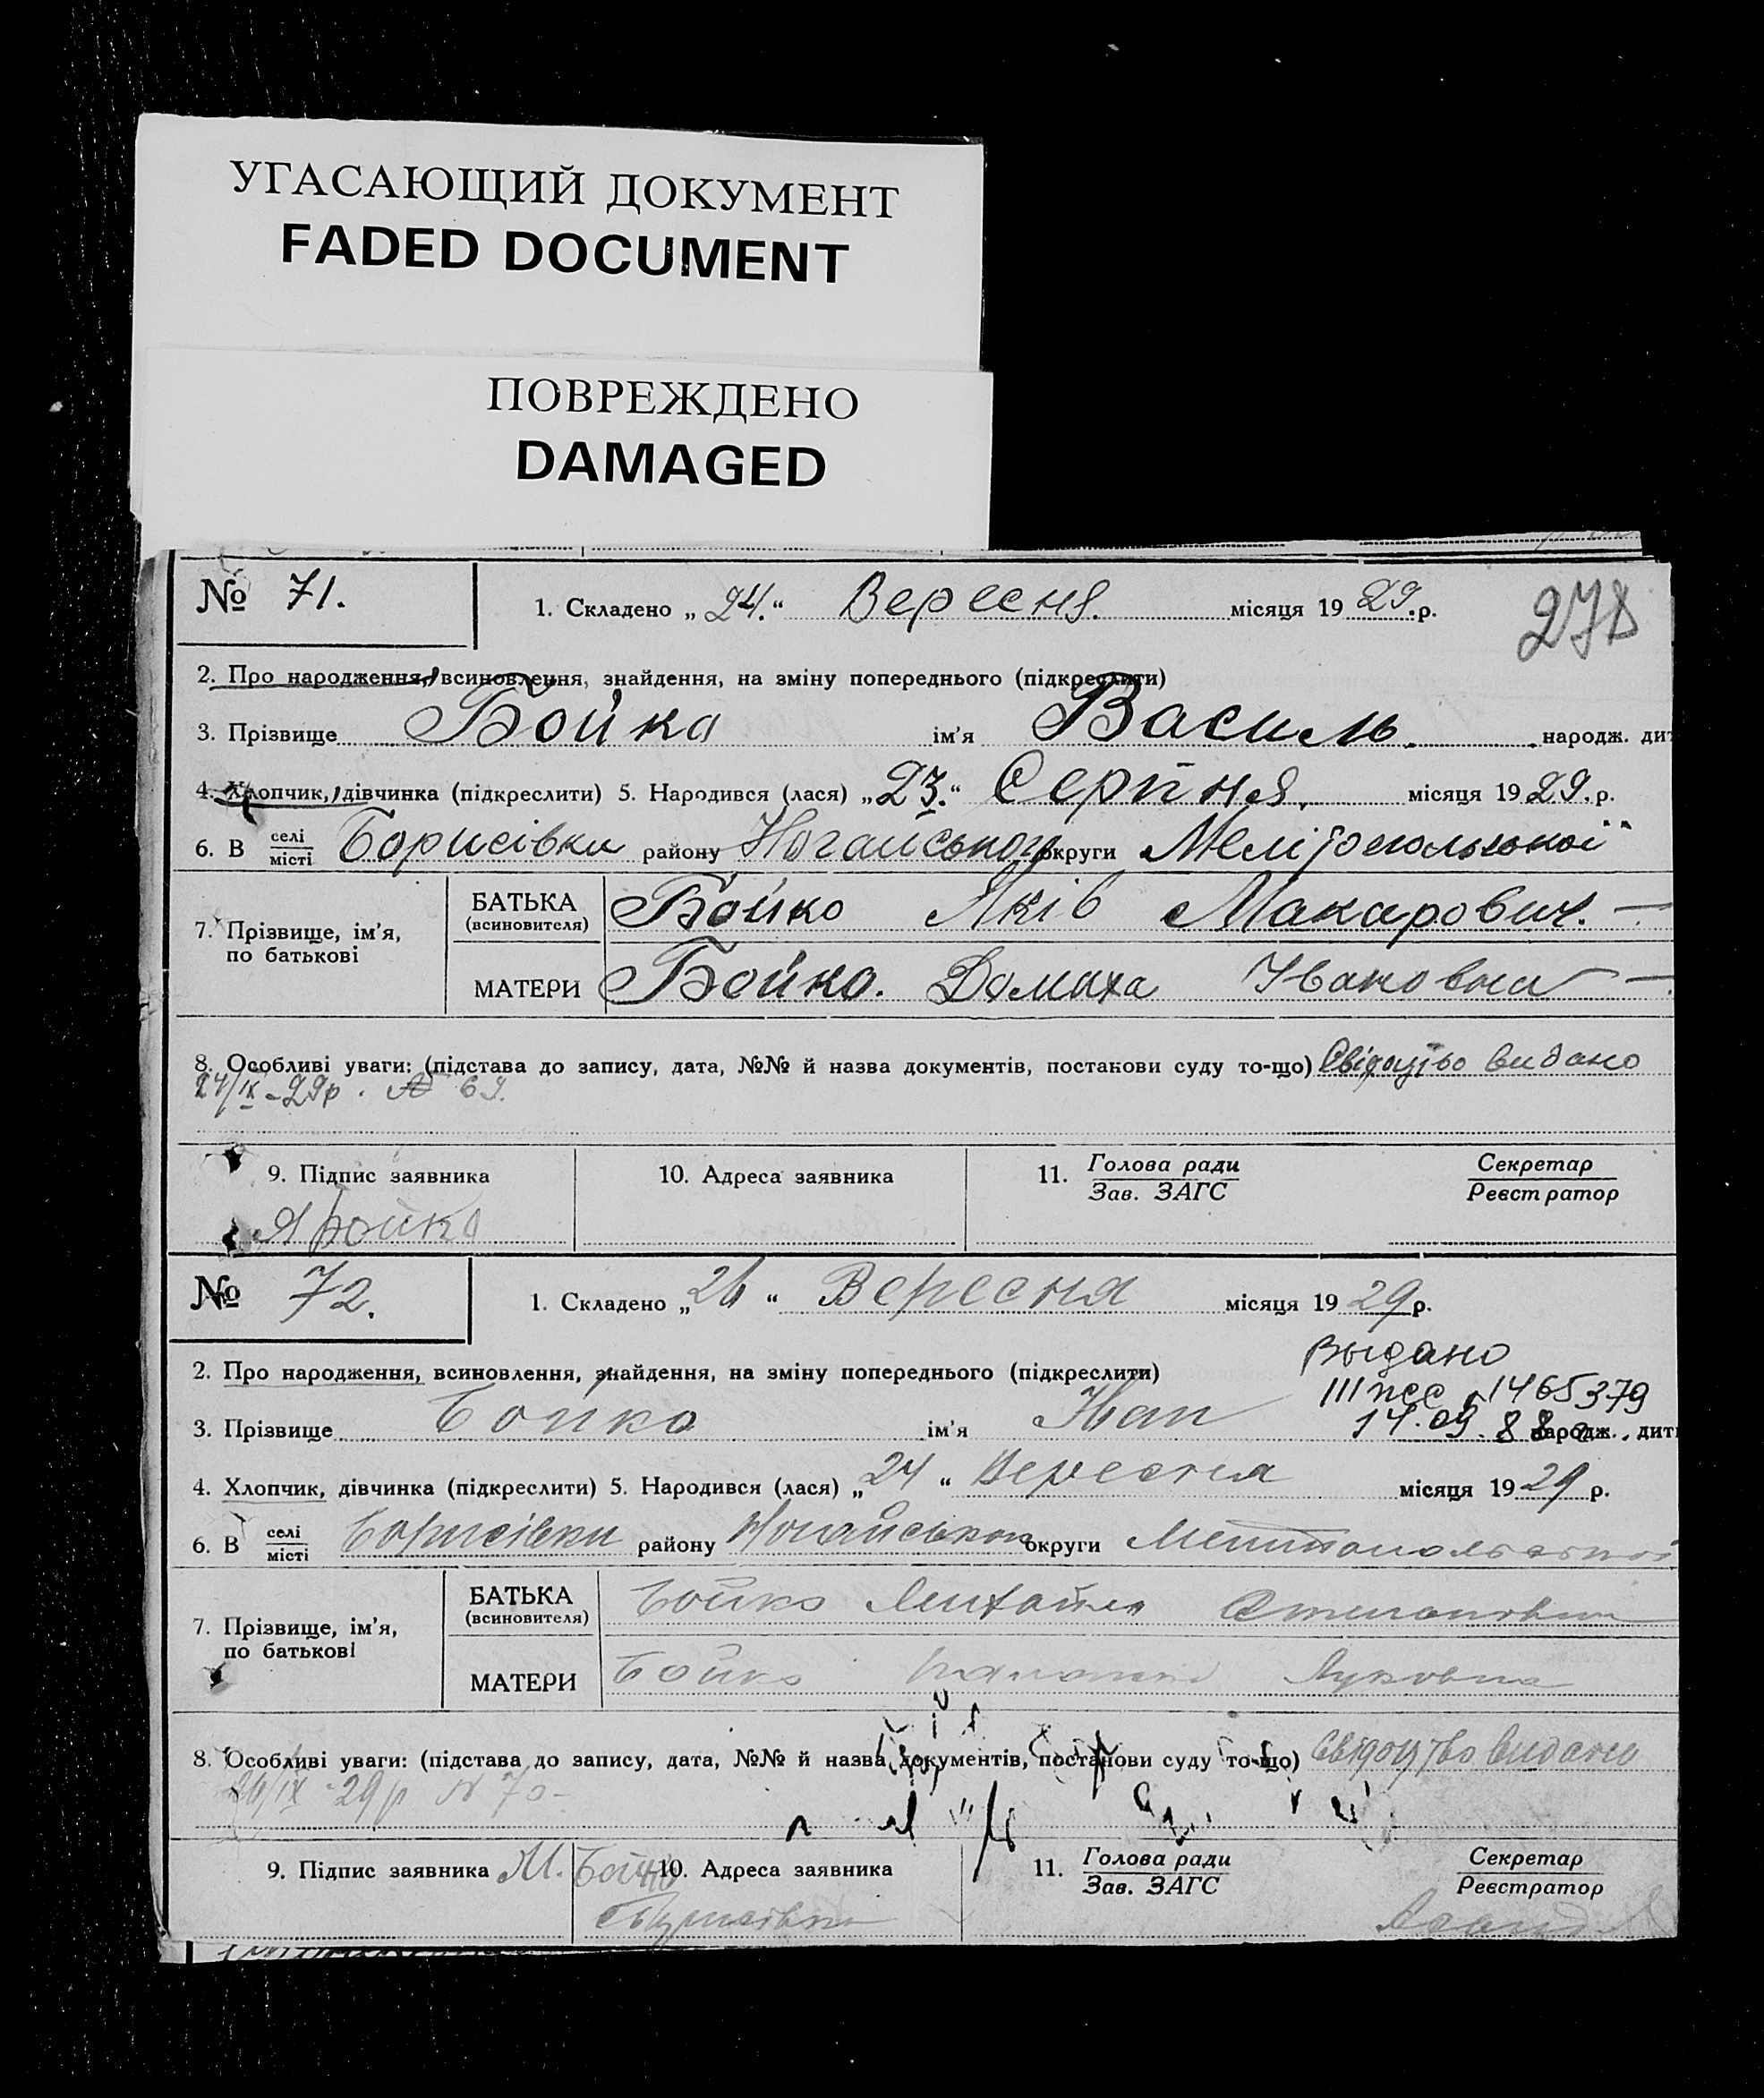 УГАСАЮЩИЙ ДОКУМЕНТ
FADED DOCUMENT
ПОВРЕЖДЕНО
DAMAGED
278
№ 71. 1. Складено „24.“ Вересня. місяця 1929.р.
2. Про народження, всиновлення, знайдення, на зміну попереднього (підкреслити)
3. Прізвище Бойко ім'я Василь. народж. дит
4. Хлопчик, дівчинка (підкреслити) 5. Народився (лася) „23.“ Серпня. місяця 1929.р.
6. В селі/місті Борисівки району Ногайського округи Мелітопольської
7. Прізвище, ім'я, по батькові
БАТЬКА (всиновителя) Бойко Яків Макарович. —
МАТЕРИ Бойко. Домаха Івановна —
8. Особливі уваги: (підстава до запису, дата, №№ й назва документів, постанови суду то-що) Свідоцтво видано
24/IX-29р. № 69.
9. Підпис заявника 10. Адреса заявника 11. Голова ради/Зав. ЗАГС Секретар/Реєстратор
Я Бойко
№ 72. 1. Складено „26“ Вересня місяця 1929р.
2. Про народження, всиновлення, знайдення, на зміну попереднього (підкреслити)
Выдано
III 1465379
14.09.88
3. Прізвище Бойко ім'я Іван народж. дит
4. Хлопчик, дівчинка (підкреслити) 5. Народився (лася) „24“ Вересня місяця 1929р.
6. В селі/місті Борисівки району Ногайського округи Мелитопольської
7. Прізвище, ім'я, по батькові
БАТЬКА (всиновителя) Бойко Михайло Степанович
МАТЕРИ Бойко Луковна
8. Особливі уваги: (підстава до запису, дата, №№ й назва документів, постанови суду то-що) Свідоцтво видано
26/IX-29р N 70-
9. Підпис заявника М. Бойко 10. Адреса заявника 11. Голова ради/Зав. ЗАГС Секретар/Реєстратор